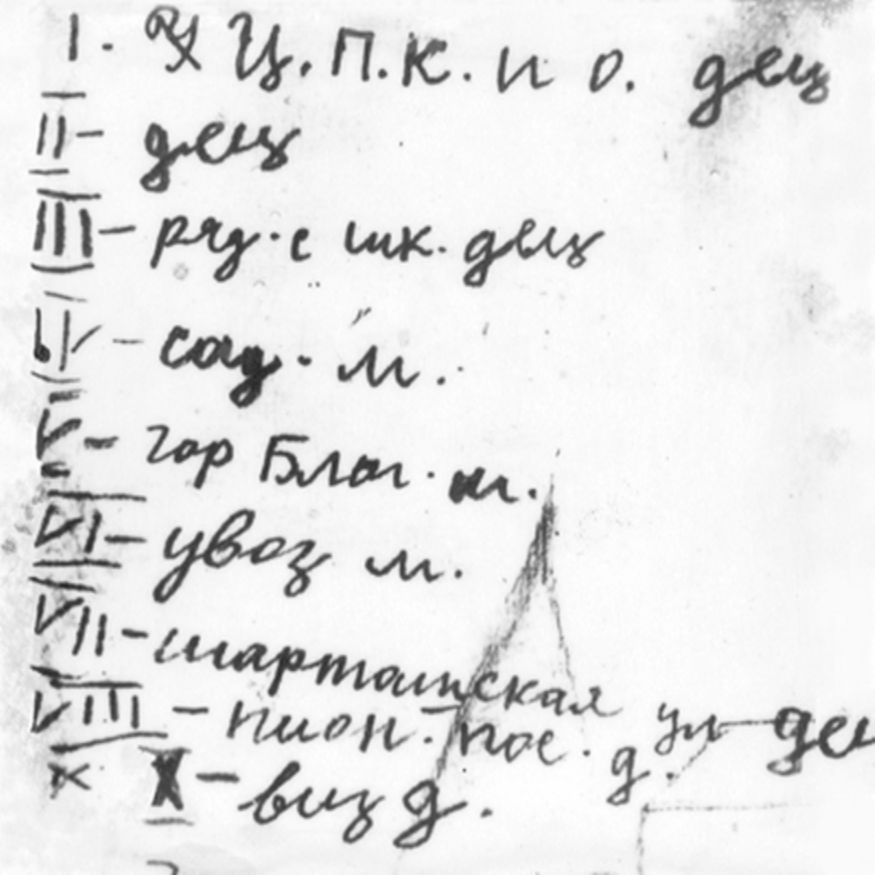 I. Ц.П.К. и О. дец
II - дец
III - ряд. с шк. дец
IV - сад. м.
V - гор Благ. м.
VI - увоз м.
VII - шарташская ул - дец
VIII - пион. пос. д.
X - виз д.